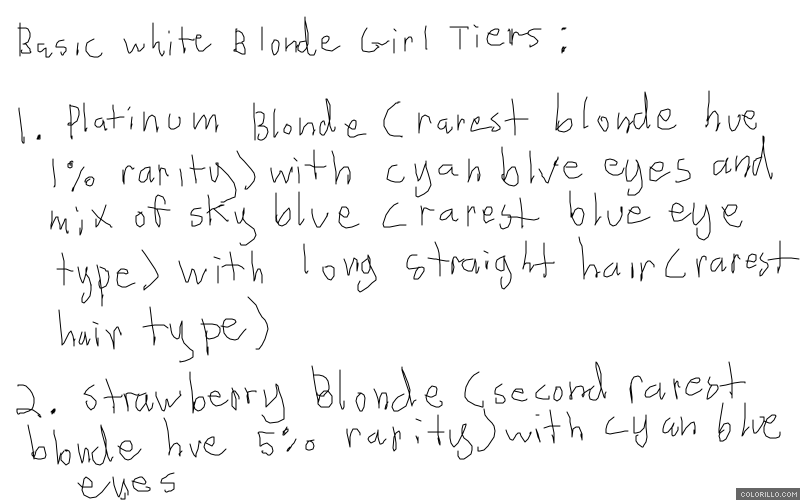 Basic white Blonde Girl Tiers:
1. Platinum Blonde (rarest blonde hue
1% rarity) with cyan blue eyes and
mix of sky blue (rarest blue eye
type) with long straight hair (rarest
hair type)
2. Strawberry Blonde (second rarest
blonde hue 5% rarity) with cyan blue
eyes
COLORILLO.COM